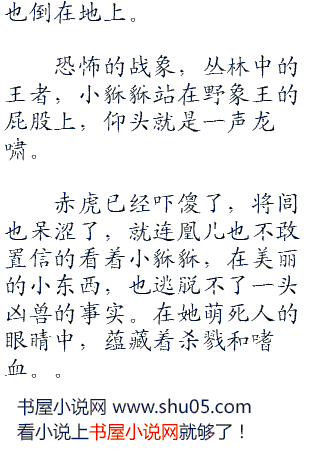 也倒在地上。
恐怖的战象，丛林中的
王者，小貅貅站在野象王的
屁股上，仰头就是一声龙
啸。
赤虎已经吓傻了，将闾
也呆涩了，就连凰儿也不敢
置信的看着小貅貅，在美丽
的小东西，也逃脱不了一头
凶兽的事实。在她萌死人的
眼睛中，蕴藏着杀戮和嗜
血。。
书屋小说网 www.shu05.com
看小说上书屋小说网就够了！